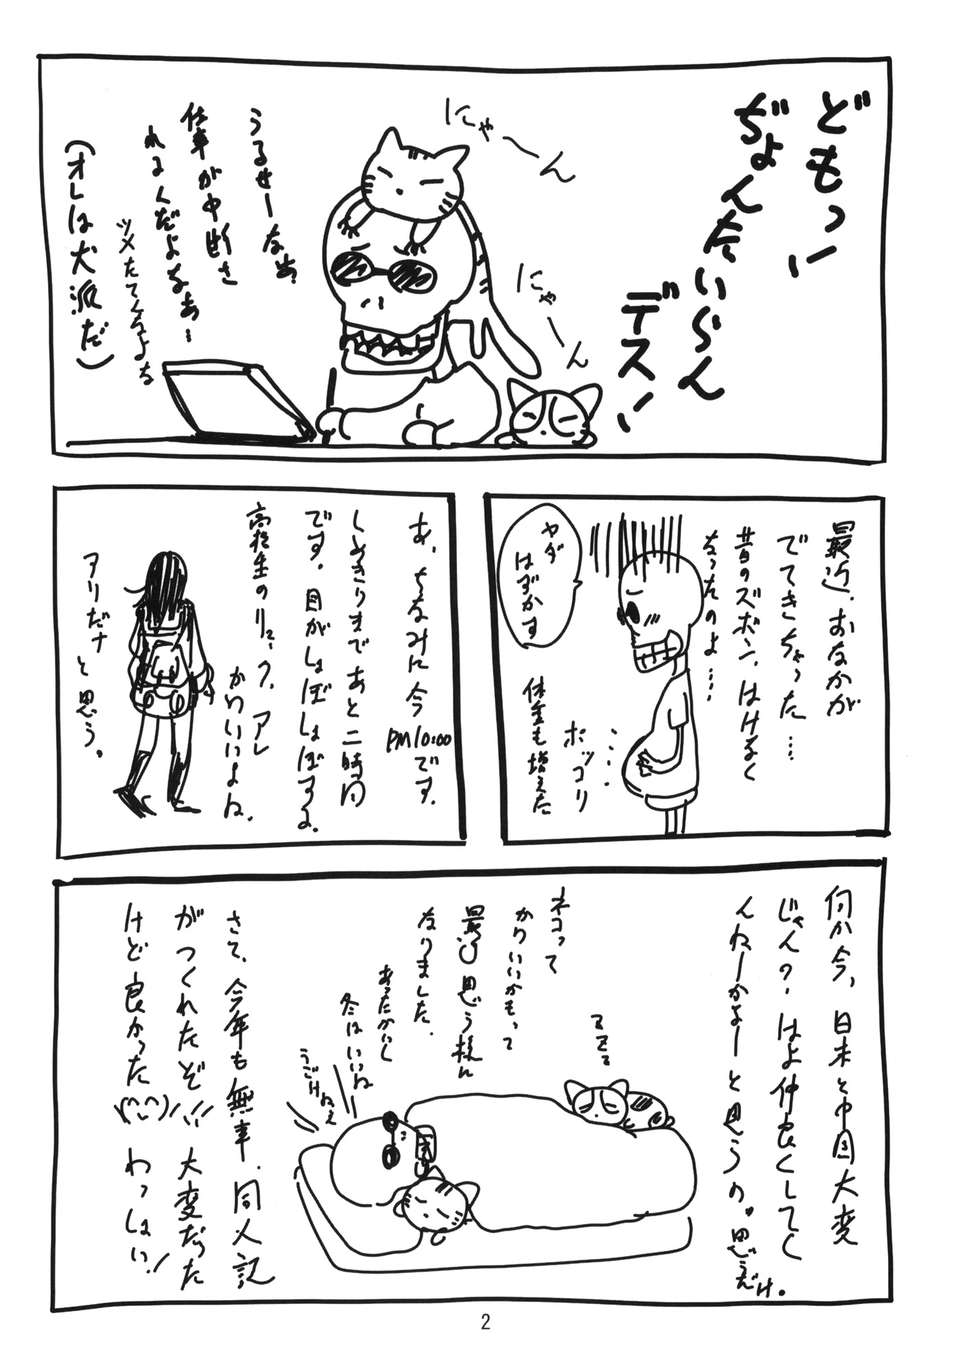 どもっ!
ぢょんたいらん
デス!
にゃーん
にゃーん
うるせーなぁ
仕事が中断さ
れるんだよなぁー
ツメたてんなよな
(オレは犬派だ)
最近、おなかが
でてきちゃった…
昔のズボン、はけなく
なったのよ……
ヤダ
はずかす
ポッコリ
体重も増えた
あ、ちなみに今
PM10:00です。
しめきりまであと二時間
です。目がしょぼしょぼするよ。
高校生のリュック、アレ
かわいいよね。
アリだナ
と思う。
何か今、日本と中国大変
じゃん?はよ仲良くしてく
んねーかなーと思うの。思うだけ。
ネコって
かわいいかもって
最近思う様に
なりました。
あったかいし
冬はいいね
うごけねぇ
さて、今年も無事、同人記
がつくれたぞ!! 大変だった
けど良かった\(^^)/ わっしょい!
2